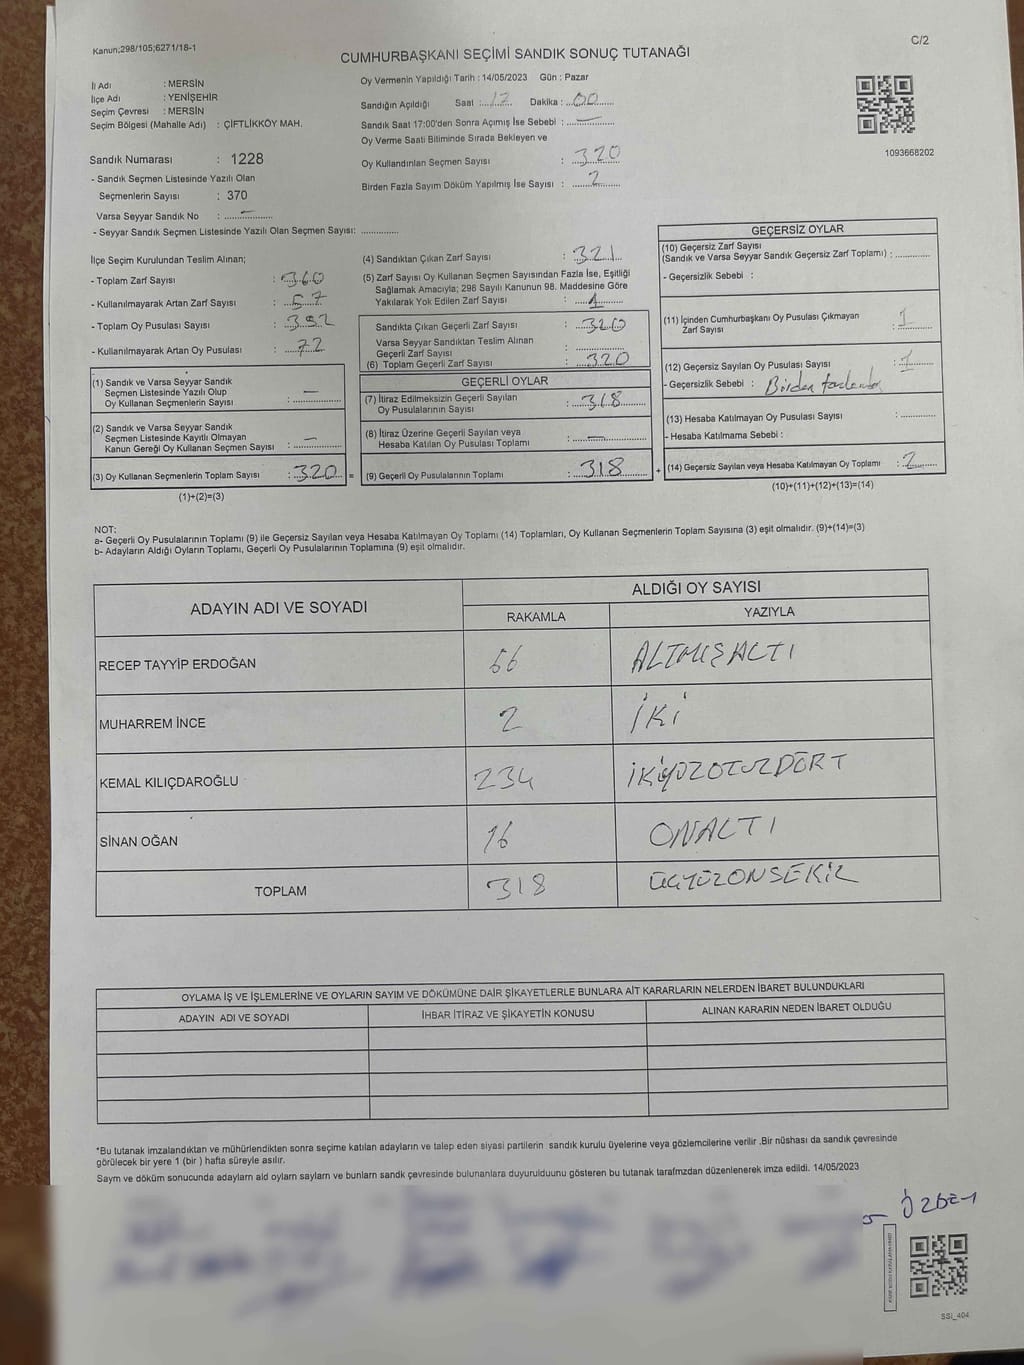 Kanun;298/105;6271/18-1
C/2
CUMHURBAŞKANI SEÇİMİ SANDIK SONUÇ TUTANAĞI
İl Adı : MERSİN
İlçe Adı : YENİŞEHİR
Seçim Çevresi : MERSİN
Seçim Bölgesi (Mahalle Adı) : ÇİFTLİKKÖY MAH.
Sandık Numarası : 1228
- Sandık Seçmen Listesinde Yazılı Olan
Seçmenlerin Sayısı : 370
Varsa Seyyar Sandık No : —
- Seyyar Sandık Seçmen Listesinde Yazılı Olan Seçmen Sayısı: ..............
Oy Vermenin Yapıldığı Tarih : 14/05/2023 Gün : Pazar
Sandığın Açıldığı Saat : 17 Dakika : 00
Sandık Saat 17:00'den Sonra Açımış İse Sebebi : —
Oy Verme Saati Biliminde Sırada Bekleyen ve
Oy Kullandırılan Seçmen Sayısı : 320
Birden Fazla Sayım Döküm Yapılmış İse Sayısı : 2
1093668202
İlçe Seçim Kurulundan Teslim Alınan;
- Toplam Zarf Sayısı : 360
- Kullanılmayarak Artan Zarf Sayısı : 57
- Toplam Oy Pusulası Sayısı : 392
- Kullanılmayarak Artan Oy Pusulası : 72
(1) Sandık ve Varsa Seyyar Sandık
Seçmen Listesinde Yazılı Olup
Oy Kullanan Seçmenlerin Sayısı : —
(2) Sandık ve Varsa Seyyar Sandık
Seçmen Listesinde Kayıtlı Olmayan
Kanun Gereği Oy Kullanan Seçmen Sayısı : —
(3) Oy Kullanan Seçmenlerin Toplam Sayısı : 320 =
(1)+(2)=(3)
(4) Sandıktan Çıkan Zarf Sayısı : 321
(5) Zarf Sayısı Oy Kullanan Seçmen Sayısından Fazla İse, Eşitliği
Sağlamak Amacıyla; 298 Sayılı Kanunun 98. Maddesine Göre
Yakılarak Yok Edilen Zarf Sayısı : 1
Sandıkta Çıkan Geçerli Zarf Sayısı : 320
Varsa Seyyar Sandıktan Teslim Alınan
Geçerli Zarf Sayısı :
(6) Toplam Geçerli Zarf Sayısı : 320
GEÇERLİ OYLAR
(7) İtiraz Edilmeksizin Geçerli Sayılan
Oy Pusulalarının Sayısı : 318
(8) İtiraz Üzerine Geçerli Sayılan veya
Hesaba Katılan Oy Pusulası Toplamı : —
(9) Geçerli Oy Pusulalarının Toplamı : 318 +
GEÇERSİZ OYLAR
(10) Geçersiz Zarf Sayısı
(Sandık ve Varsa Seyyar Sandık Geçersiz Zarf Toplamı) : ............
- Geçersizlik Sebebi :
(11) İçinden Cumhurbaşkanı Oy Pusulası Çıkmayan
Zarf Sayısı : 1
(12) Geçersiz Sayılan Oy Pusulası Sayısı : 1
- Geçersizlik Sebebi : Birden fazla
(13) Hesaba Katılmayan Oy Pusulası Sayısı : ............
- Hesaba Katılmama Sebebi :
(14) Geçersiz Sayılan veya Hesaba Katılmayan Oy Toplamı : 2
(10)+(11)+(12)+(13)=(14)
NOT:
a- Geçerli Oy Pusulalarının Toplamı (9) ile Geçersiz Sayılan veya Hesaba Katılmayan Oy Toplamı (14) Toplamları, Oy Kullanan Seçmenlerin Toplam Sayısına (3) eşit olmalıdır. (9)+(14)=(3)
b- Adayların Aldığı Oyların Toplamı, Geçerli Oy Pusulalarının Toplamına (9) eşit olmalıdır.
ADAYIN ADI VE SOYADI
ALDIĞI OY SAYISI
RAKAMLA YAZIYLA
RECEP TAYYİP ERDOĞAN 66 ALTMIŞALTI
MUHARREM İNCE 2 İKİ
KEMAL KILIÇDAROĞLU 234 İKİYÜZOTUZDÖRT
SİNAN OĞAN 16 ONALTI
TOPLAM 318 ÜÇYÜZONSEKİZ
OYLAMA İŞ VE İŞLEMLERİNE VE OYLARIN SAYIM VE DÖKÜMÜNE DAİR ŞİKAYETLERLE BUNLARA AİT KARARLARIN NELERDEN İBARET BULUNDUKLARI
ADAYIN ADI VE SOYADI İHBAR İTİRAZ VE ŞİKAYETİN KONUSU ALINAN KARARIN NEDEN İBARET OLDUĞU
*Bu tutanak imzalandıktan ve mühürlendikten sonra seçime katılan adayların ve talep eden siyasi partilerin sandık kurulu üyelerine veya gözlemcilerine verilir .Bir nüshası da sandık çevresinde
görülecek bir yere 1 (bir ) hafta süreyle asılır.
Saym ve döküm sonucunda adaylarn ald oylarn saylarn ve bunlarn sandk çevresinde bulunanlara duyurulduunu gösteren bu tutanak tarafmzdan düzenlenerek imza edildi. 14/05/2023
SSi_404